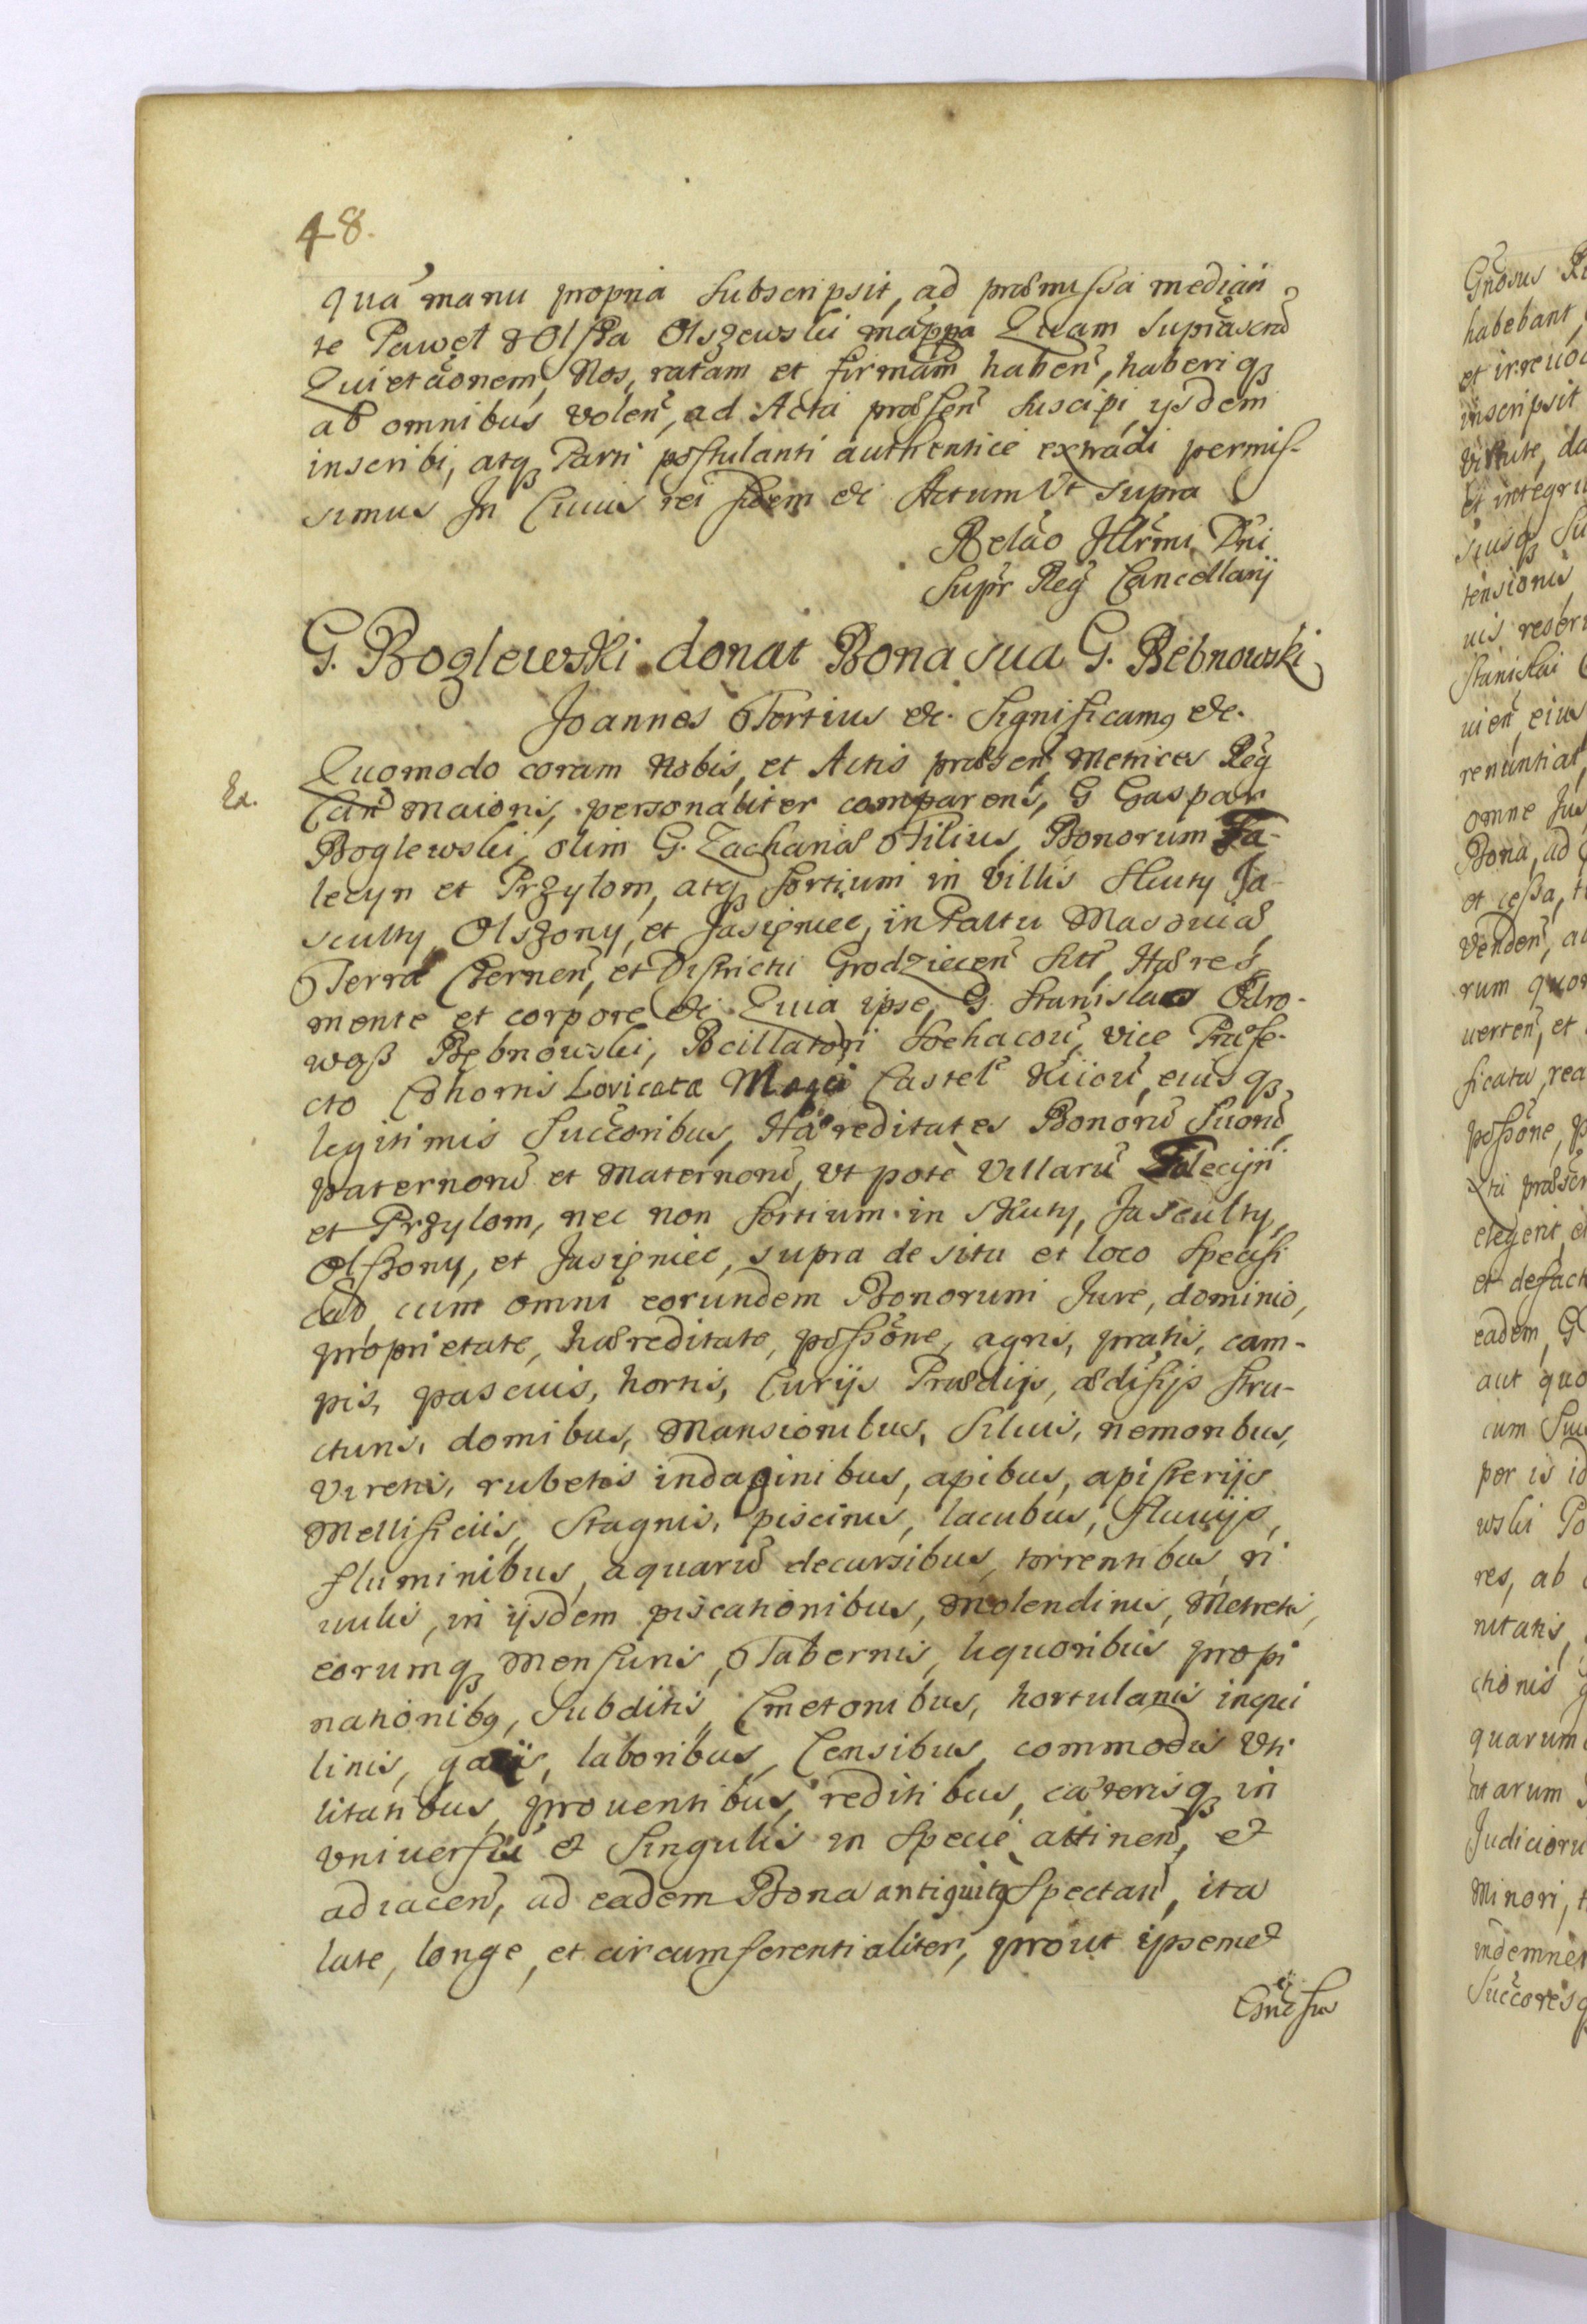 48.
quá manu propria subscripsit, ad præmissa median
te Paweł z Olszá Olszewski mãppa Quam suprãscrũ
Quietãonem, Nos, ratam et firmam habeñ, haberiqȝ
ab omnibus voleñ, ad Acta præseñ suscipi, ysdem
inscribi, atqȝ Parti postulanti authentice extradi permis-
simus In Cuius rei fidem &c Actum Vt supra
Relão Illr̃mi Dñi
Supr̃ Reg̃ Cancellarij
G. Boglewski donat Bona sua G. Bębnowski
Joannes Tertius &c. Significamꝯ &c.
Ex.
Quomodo coram Nobis, et Actis præseñ Metrices Reg̃
Cañ Maioris, personaliter comparens, G Gaspar
Boglewski, olim G. Zachariæ Filius, Bonorum Fa-
lecyn et Przylom, atqȝ sortium in Villis Skuty Ja-
sculty, Olszony, et Jasięniec, in Paltu Masoviæ
Terra Czerneñ, et Districtu Grodzieceñ sit̃, Hæres,
mente et corpore &c. Quia ipse, G. Stanislao Odro-
wąß Bębnowski, Vexillatori Sochacoũ, vice Præfe-
cto Cohortis Loricatæ Magci Castel̃ Kiioũ, eiusqȝ
legitimis Succ̃oribus, Hæreditates Bonorũ Suorũ,
paternorũ et Maternorũ, vt pote Villarũ Falecyn
et Przylom, nec non sortium in Skuty, Jasculty,
Olszony, et Jasięniec, supra de situ et loco specifi
cat̃, cum omni eorundem Bonorum Jure, dominio,
proprietate, hæreditate, possõne, agris, pratis, cam-
pis, pascuis, hortis, Curijs Prædijs, ædifijs stru-
cturis, domibus, Mansionibus, siluis, nemoribus,
Viretis, rubetis indaginibus, apibus, apisterijs
Mellificiis, Stagnis, piscinis, lacubus, fluuijs,
fluminibus, aquarũ decursibus, torrentibus, ri
uulis, in ijsdem piscationibus, Molendinis, Metretis,
eorumqȝ Mensuris, Tabernis, liquoribus propi
nationibꝯ, Subditis, Cmetonibus, hortulanis inqui
linis, gazis, laboribus, Censibus, commodis Vti
litatibus, prouentibus, reditibus, cæterisqȝ in
vniuersis et singulis in specie attineñ, et
adiaceñ, ad eadem Bona antiquitꝯ spectañ, ita
late, longe, et circumferentialiter, prout ipsemet
Gñosus